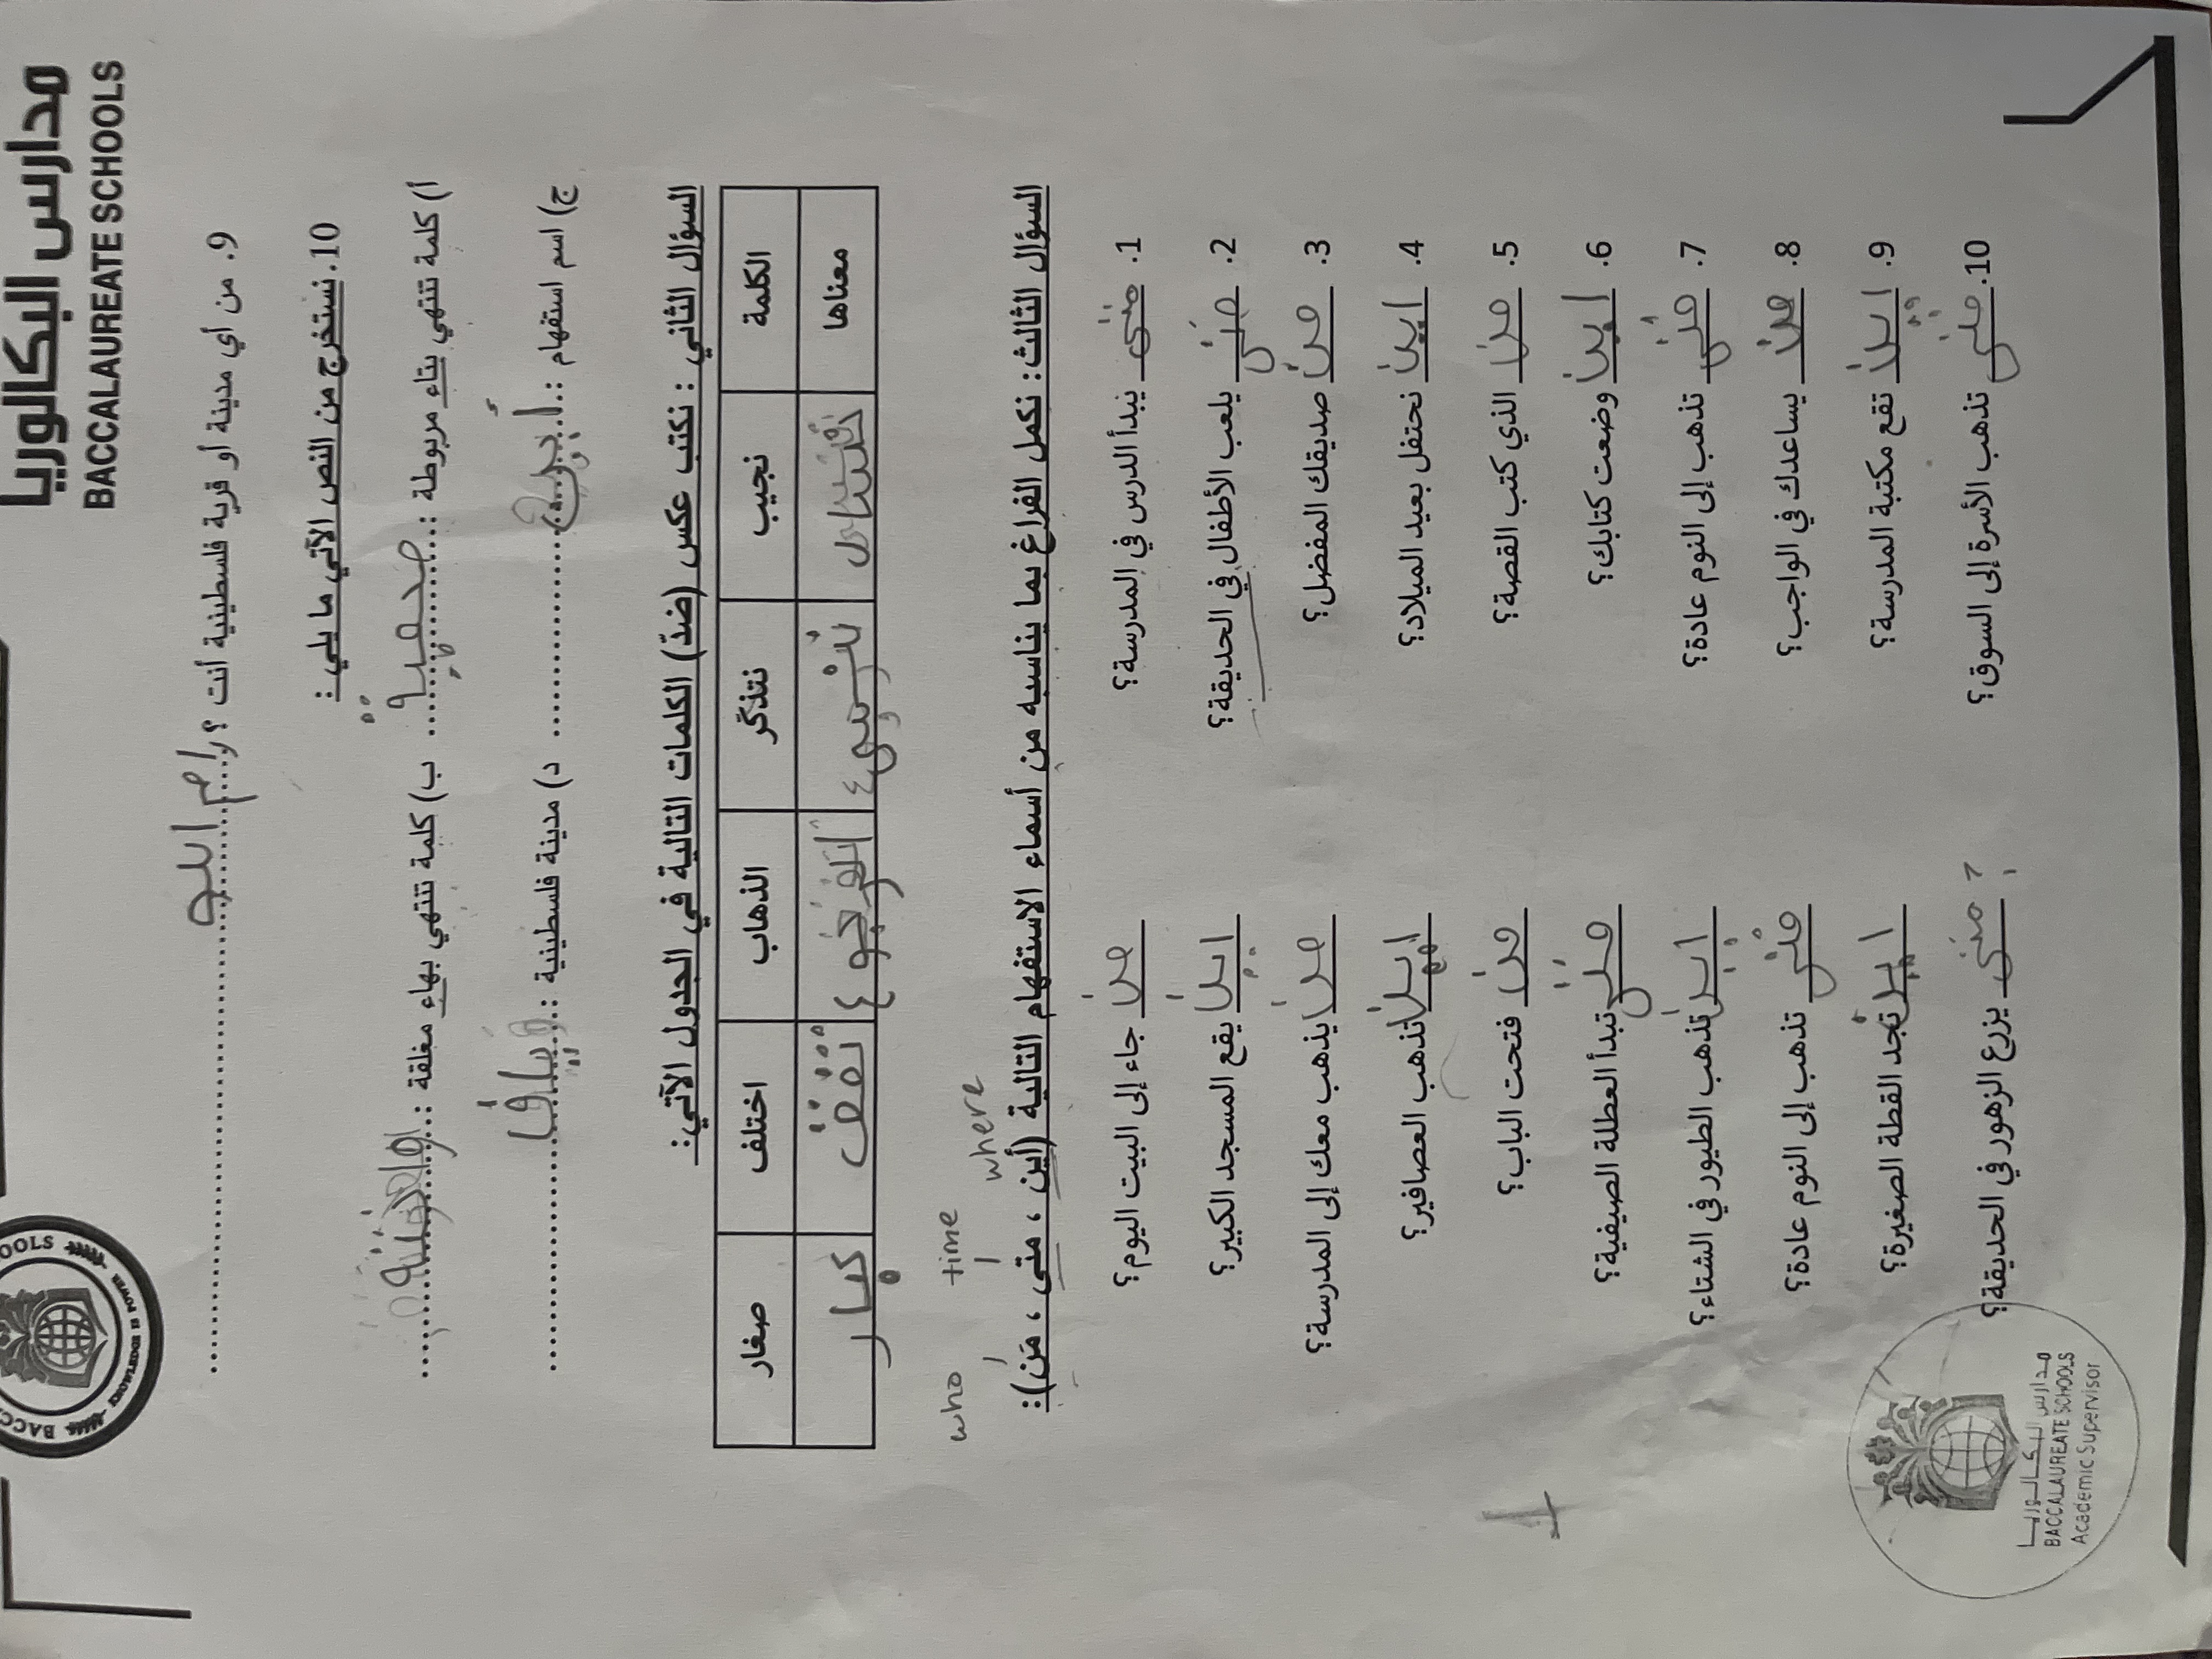 مدارس البكالوريا
BACCALAUREATE SCHOOLS
9. من أي مدينة أو قرية فلسطينية أنت ؟ رام الله
10. نستخرج من النص الآتي ما يلي :
أ) كلمة تنتهي بتاء مربوطة : ب) كلمة تنتهي بهاء مغلقة :
ج) اسم استفهام : أين د) مدينة فلسطينية : يافا
السؤال الثاني : نكتب عكس (ضدّ) الكلمات التالية في الجدول الآتي:
الكلمة نجيب نتذكّر الذهاب اختلف صغار
معناها نتسال اتفق كبار
who time where
السؤال الثالث: نكمل الفراغ بما يناسبه من أسماء الاستفهام التالية (أين ، متى ، مَن):
1. متى يبدأ الدرس في المدرسة؟ من جاء إلى البيت اليوم؟
2. متى يلعب الأطفال في الحديقة؟ اين يقع المسجد الكبير؟
3. من صديقك المفضل؟ من يذهب معك إلى المدرسة؟
4. اين نحتفل بعيد الميلاد؟ اين تذهب العصافير؟
5. من الذي كتب القصة؟ من فتحت الباب؟
6. اين وضعت كتابك؟ متى تبدأ العطلة الصيفية؟
7. متى تذهب إلى النوم عادة؟ اين تذهب الطيور في الشتاء؟
8. من يساعدك في الواجب؟ متى تذهب إلى النوم عادة؟
9. اين تقع مكتبة المدرسة؟ اين تجد القطة الصغيرة؟
10. متى تذهب الأسرة إلى السوق؟ متى يزرع الزهور في الحديقة؟
مدارس البكالوريا
BACCALAUREATE SCHOOLS
Academic Supervisor